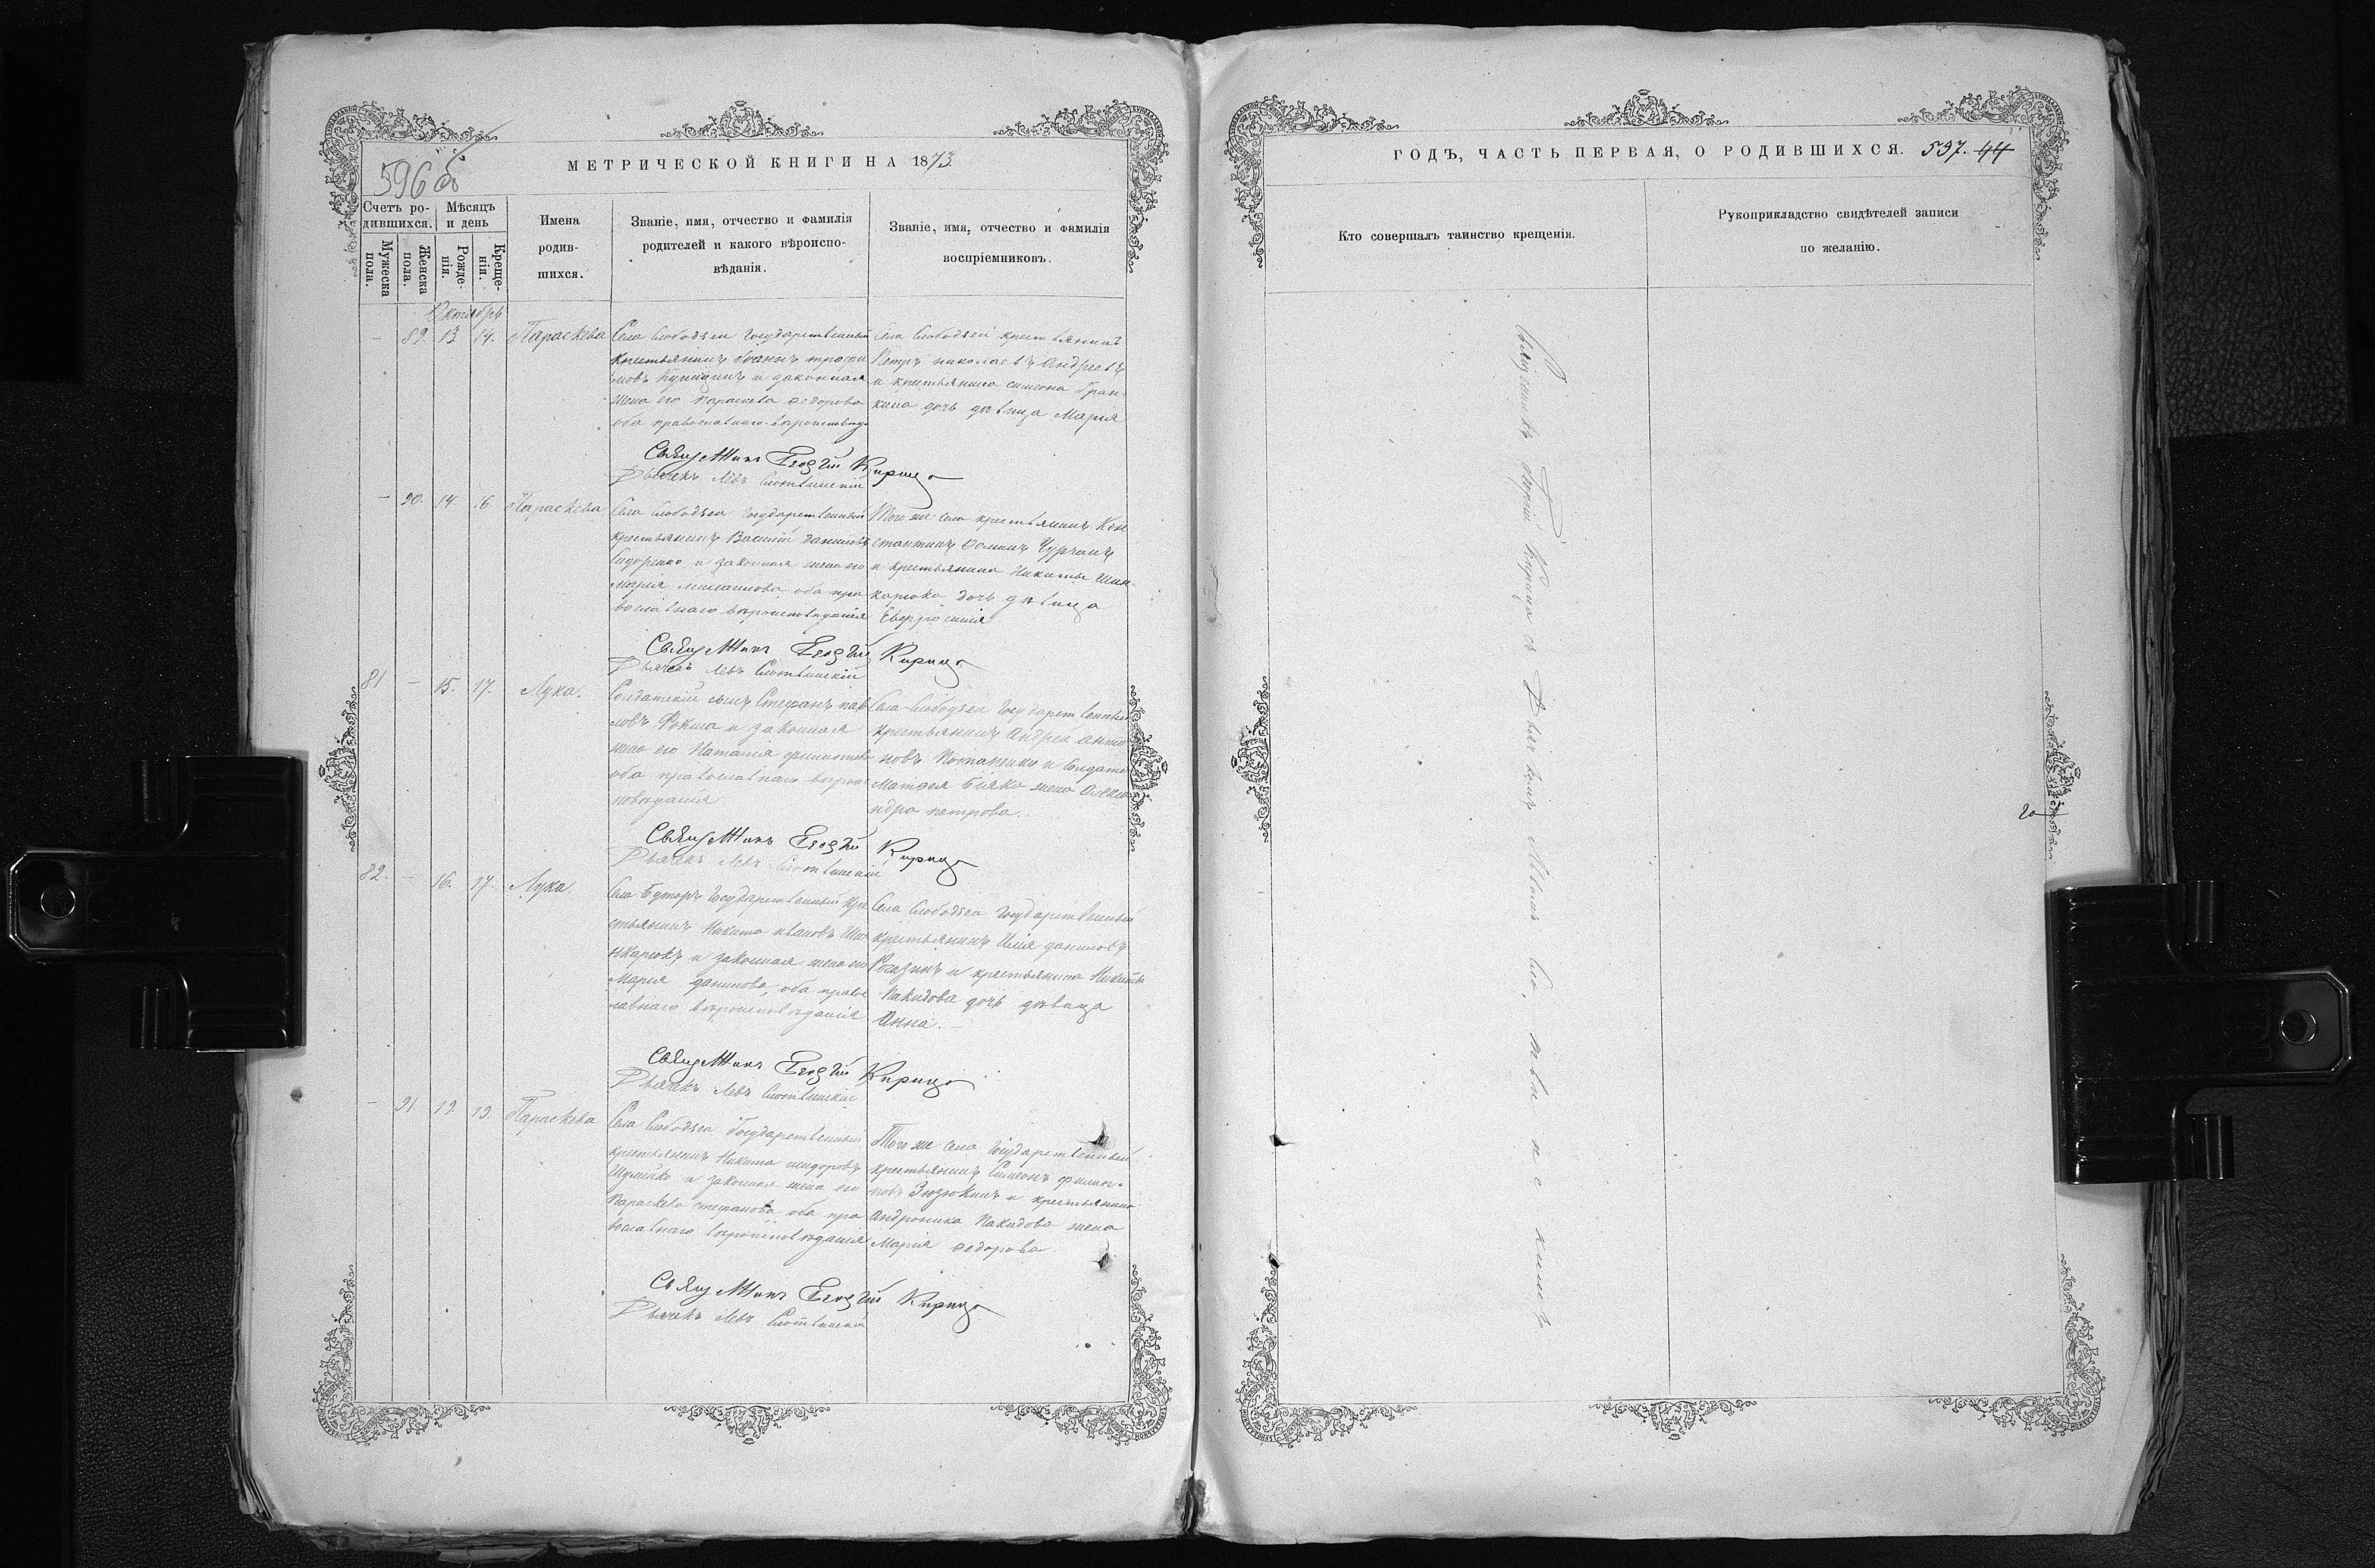 596 об
МЕТРИЧЕСКОЙ КНИГИ НА 1873
Счетъ ро-
дившихся.
Мѣсяцъ
и день
Мужеска
пола.
Женска
пола.
Рожде-
нія.
Креще-
нія.
Имена
родив-
шихся.
Званіе, имя, отчество и фамилія
родителей и какого вѣроиспо-
вѣданія.
Званіе, имя, отчество и фамилія
воспріемниковъ.
Октябрь
— 89. 13 14. Параскева
Села Слободзеи Государственный
крестьянинъ Іоаннъ
и законная
жена его Параскева Ѳедорова
оба православнаго вѣроисповѣд
Села Слободзеи крестьянинъ
Петръ Николаевъ Андреевъ
и крестьянина Симеона Гран-
кина дочь дѣвица Марія
Священникъ Георгій Кирица
Дьячекъ Левъ
— 90. 14. 16 Параскева
Села Слободзеи Государственный
крестьянинъ Василій Даниловъ
Сидоренко и законная жена его
Марія Михаилова оба пра
вославнаго вѣроисповѣданія
Того же села крестьянинъ Кон
стантинъ Ѳоминъ
и крестьянина Никиты Шин-
карюка дочь дѣвица
Евфросинія
Священникъ Георгій Кирица
Дьячекъ Левъ
81 — 15. 17. Лука.
Солдатскій сынъ Стефанъ Пав
ловъ Фокша и законная
жена его Наталія
оба православнаго вѣроис
повѣданія
Села Слободзеи Государственный
крестьянинъ Андрей Анто
новъ Потапенко и Солдата
Матѳея жена Алекса
ндра Петрова.
Священникъ Георгій Кирица
Дьячекъ Левъ
82. — 16. 17. Лука.
Села Буторъ Государственный кре
стьянинъ Никита Ивановъ Ши
нкарюкъ и законная жена его
Марія Данилова, оба правос
лавнаго вѣроисповѣданія
Села Слободзеи Государственный
крестьянинъ Илія Даниловъ
Рогазинъ и крестьянина Никиты
Пакидова дочь дѣвица
Анна. —
Священникъ Георгій Кирица
Дьячекъ Левъ
— 91. 19. 19. Параскева
Села Слободзеи Государственный
крестьянинъ Никита
Шумейко и законная жена его
Параскева Стефанова оба пра
вославнаго вѣроисповѣданія
Того же села Государственный
крестьянинъ Симеонъ Филип-
повъ Зюзюкинъ и крестьянина
Андроника Пакидова жена
Марія Ѳедорова.
Священникъ Георгій Кирица
Дьячекъ Левъ
ГОДЪ, ЧАСТЬ ПЕРВАЯ, О РОДИВШИХСЯ. 597. 44
Кто совершалъ таинство крещенія.
Рукоприкладство свидѣтелей записи
по желанію.
Священникъ Георгій Кирица съ Дьячкомъ